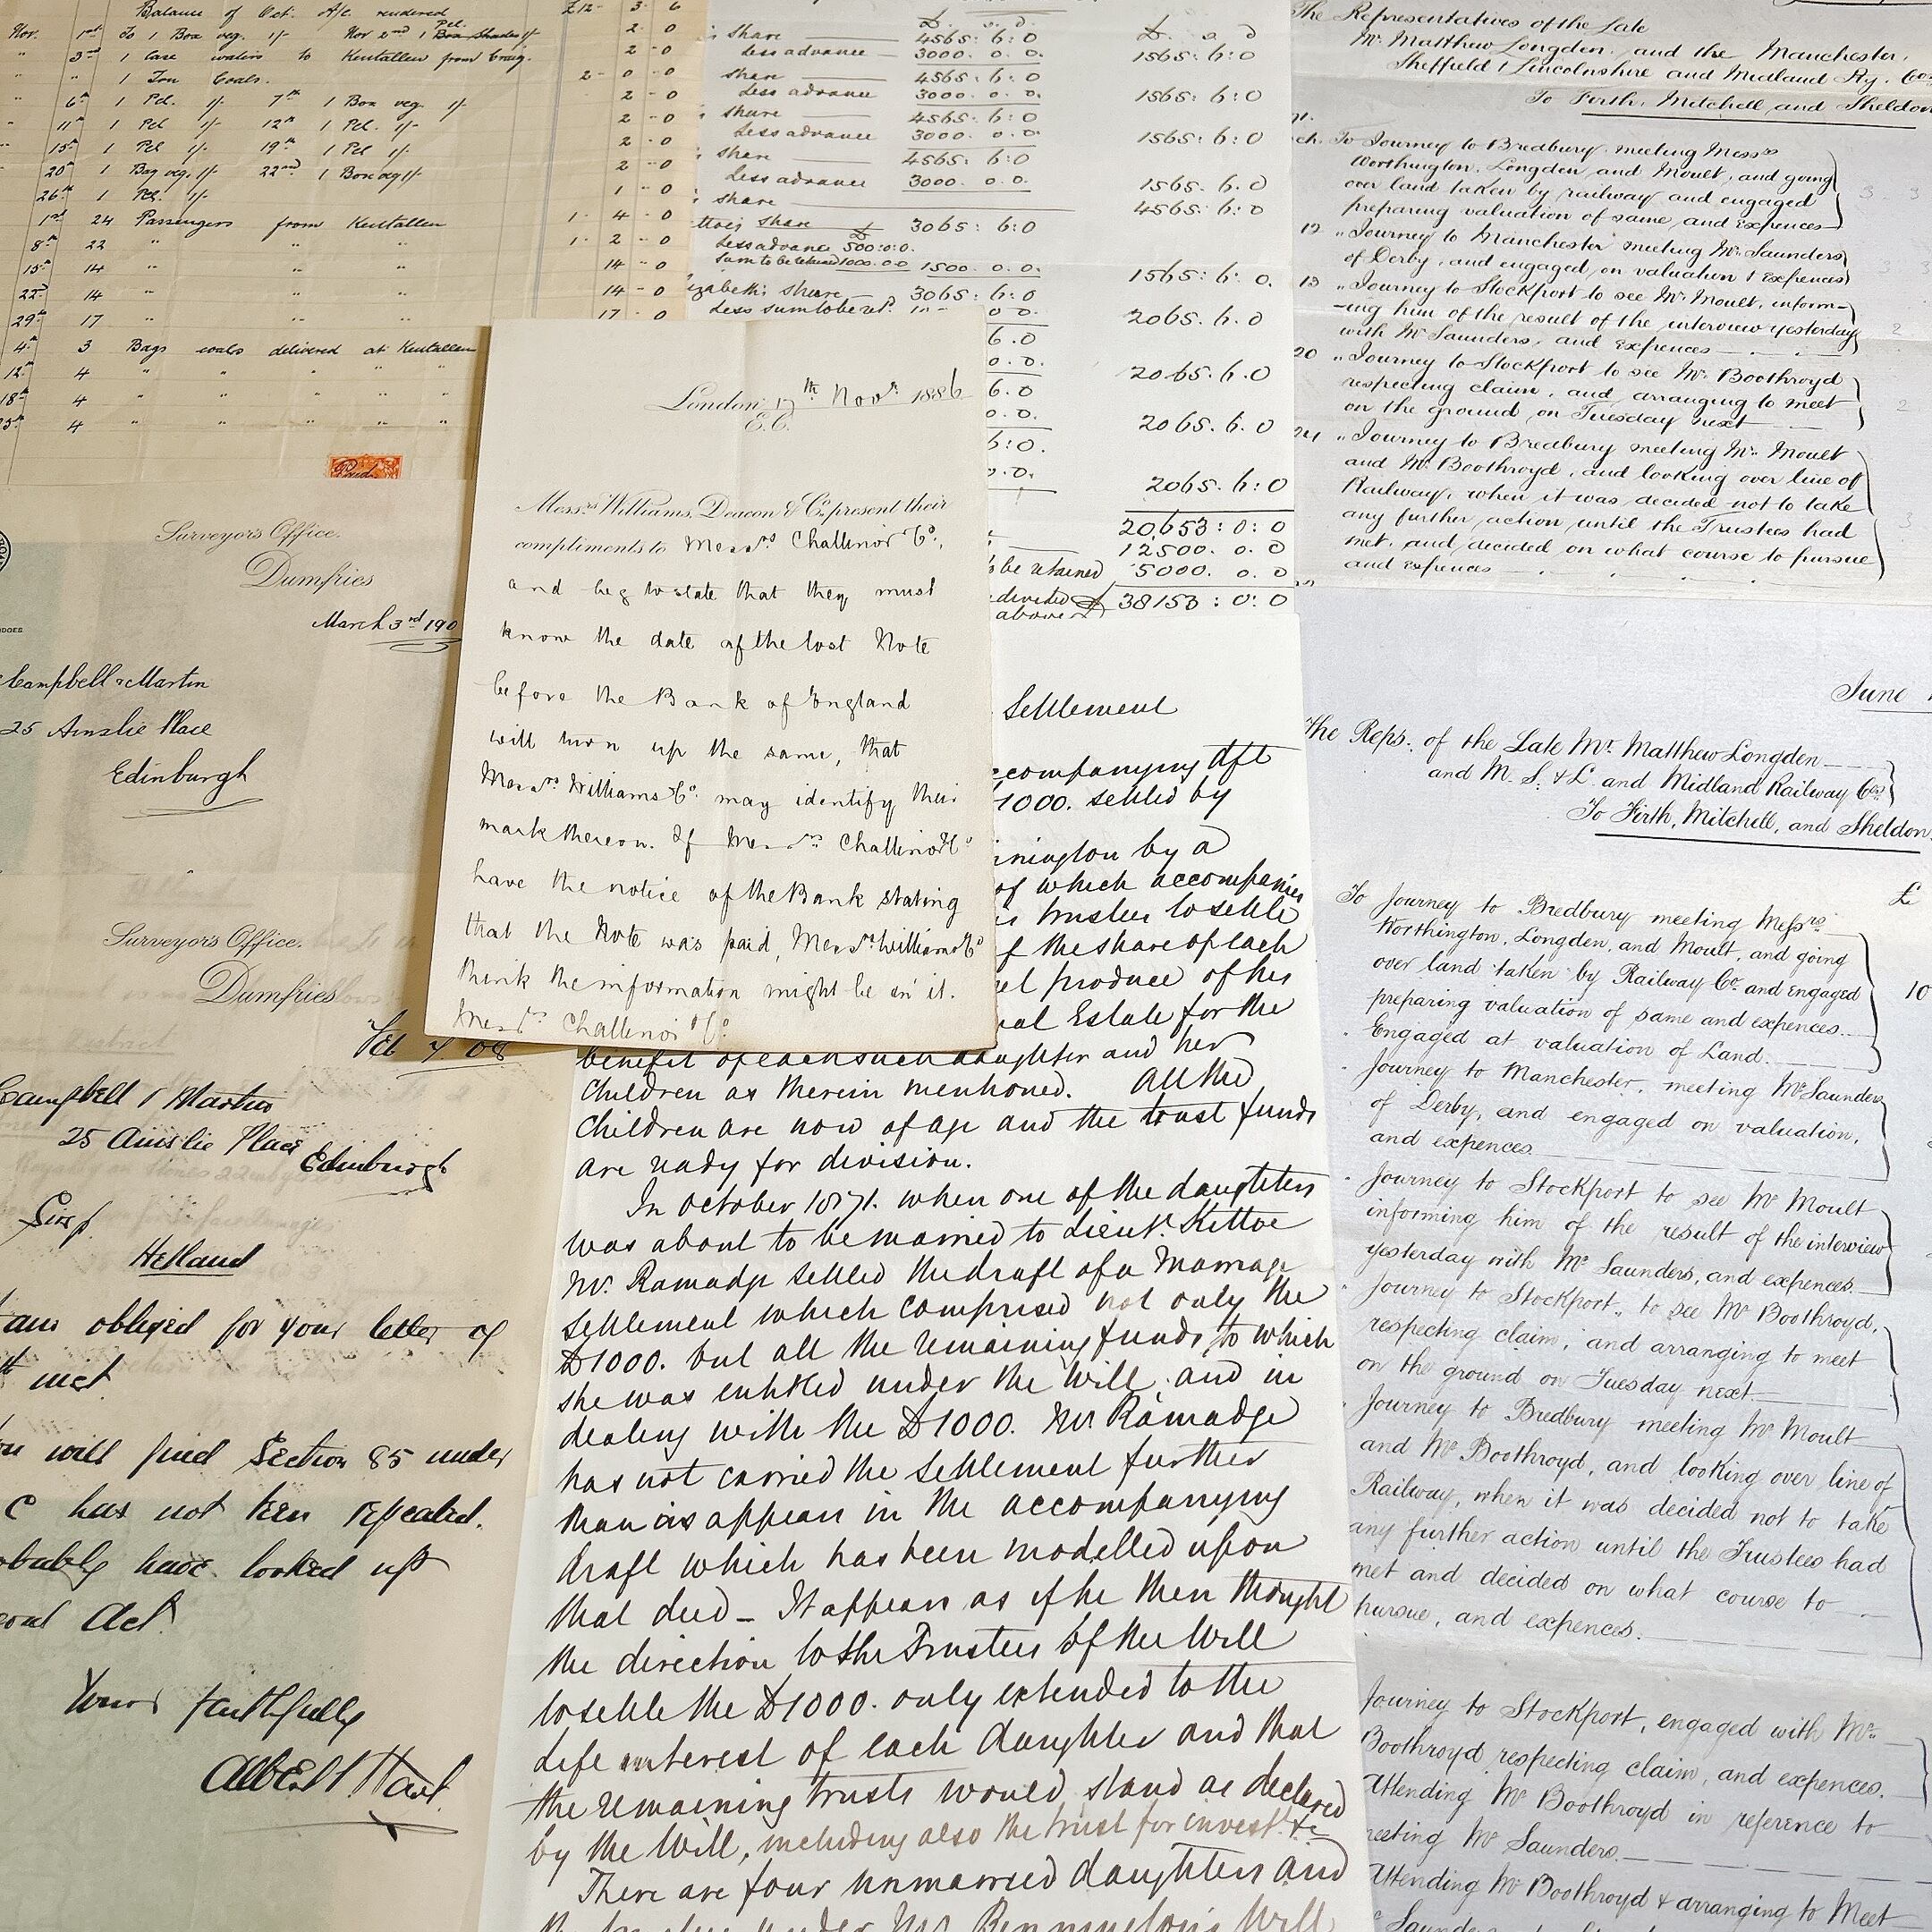 Balance of Oct. A/c rendered £12 - 3 - 6
Nov. 1st To 1 Box veg. 1/- Nov 2nd 1 Pcl. 1/- 2 - 0
" 3rd 1 Case to Kentallen from Craig. 2 - 0
" " 1 Ton Coals. 2 - 0 - 0
" 6th 1 Pcl. 1/- 7th 1 Box veg. 1/- 2 - 0
" 11th 1 Pcl 1/- 12th 1 Pcl. 1/- 2 - 0
" 15th 1 Pcl 1/- 19th 1 Pcl 1/- 2 - 0
20th 1 Bag veg. 1/- 22nd 1 Box veg 1/- 2 - 0
26th 1 Pcl. 1/- 1 - 0
1st 24 Passengers from Kentallen 1 - 4 - 0
8th 22 " " " 1 - 2 - 0
15th 14 " " " 14 - 0
22nd 14 " " " 14 - 0
29th 17 " " " 17 - 0
4th 3 Bags coals delivered at Kentallen
12th 4 " " " " "
18th 4 " " " " "
25th 4 " " " " "
Paid
Surveyor's Office.
Dumfries
March 3rd 190
Campbell & Martin
25 Ainslie Place
Edinburgh
Surveyor's Office.
Dumfries
Feb 7 08
Campbell & Martin
25 Ainslie Place
Edinburgh
Sirs/
Helland
am obliged for your letter of
inst
will find Section 85 under
C has not been repealed.
probably have looked up
Act.
Yours faithfully
Albert Hart
£. s. d. £. s. d
share 4565: 6: 0
Less advance 3000. 0. 0. 1565: 6: 0
share 4565: 6: 0
Less advance 3000. 0. 0. 1565: 6: 0
share 4565: 6: 0
Less advance 3000. 0. 0. 1565: 6: 0
share 4565: 6: 0
Less advance 3000. 0. 0. 1565. 6. 0
share 4565: 6: 0
share £ 3065: 6: 0
Less advance 500:0:0.
Sum to be retained 1000.0.0 1500. 0. 0. 1565: 6: 0.
Elizabeth's share 3065: 6: 0
Less sum to be ret. 0 0. 2065. 6. 0
6. 0
0. 0. 2065. 6. 0
6. 0
0. 0. 2065. 6. 0
6: 0.
0. 0. 2065. 6: 0
20,653: 0: 0
12500. 0. 0
to be retained 5000. 0. 0
divided £ 38153: 0: 0
above
London, 17th Novr. 1886
E.C.
Messrs Williams, Deacon & Co. present their
compliments to Messrs Challinor & Co.,
and beg to state that they must
know the date of the lost Note
before the Bank of England
will turn up the same, that
Messrs Williams & Co. may identify their
mark thereon. If Messrs Challinor & Co
have the notice of the Bank stating
that the Note was paid, Messrs Williams & Co
think the information might be in it.
Messrs Challinor & Co.
Settlement
accompanying dft
1000. settled by
nnington by a
of which accompanies
trustees to settle
of the share of each
produce of his
Real Estate for the
benefit of each such daughter and her
children as therein mentioned. All the
children are now of age and the trust funds
are ready for division.
In October 1871. when one of the daughters
was about to be married to Lieut. Kittoe
Mr. Ramadge settled the draft of a Marriage
Settlement which comprised not only the
£1000. but all the remaining funds to which
she was entitled under the Will, and in
dealing with the £1000. Mr Ramadge
has not carried the settlement further
than as appears in the accompanying
draft which has been modelled upon
that deed – It appears as if he then thought
the direction to the Trustees of the Will
to settle the £1000. only extended to the
Life interest of each daughter and that
the remaining trusts would stand as declared
by the Will, including also the trust for invest. &c
There are four unmarried daughters and
under Mr Bennington's Will
The Representatives of the Late
Mr. Matthew Longden. and the Manchester,
Sheffield & Lincolnshire and Midland Ry. Cos
To Firth, Mitchell, and Sheldon
To Journey to Bredbury. meeting Messrs
Worthington, Longden, and Moult, and going
over land taken by railway and engaged
preparing valuation of same and Expences 3 3
12 " Journey to Manchester meeting Mr. Saunders
of Derby, and engaged, on valuation & Expences
13 " Journey to Stockport to see Mr. Moult, inform-
-ing him of the result of the interview yesterday
with Mr Saunders, and Expences 2
20 " Journey to Stockport to see Mr. Boothroyd
respecting claim, and, arranging to meet
on the ground, on Tuesday next 2
24 " Journey to Bredbury meeting Mr. Moult
and Mr. Boothroyd, and looking over line of
Railway, when it was decided not to take
any further action until the Trustees had
met, and, decided, on what course to pursue
and Expences 3
June
The Reps. of the Late Mr. Matthew Longden
and M. S. & L. and Midland Railway Cos
To Firth, Mitchell, and Sheldon.
£
To Journey to Bredbury meeting Messrs.
Worthington, Longden, and Moult, and going
over land taken by Railway Co. and engaged
preparing valuation of same and expences. 10
Engaged at valuation of Land.
Journey to Manchester, meeting Mr Saunders
of Derby, and engaged on valuation,
and expences.
Journey to Stockport to see Mr Moult
informing him of the result of the interview
yesterday with Mr Saunders, and expences.
Journey to Stockport, to see Mr Boothroyd,
respecting claim, and arranging to meet
on the ground on Tuesday next.
Journey to Bredbury meeting Mr Moult
and Mr Boothroyd, and looking over line of
Railway, when it was decided not to take
any further action until the Trustees had
met and decided on what course to
pursue, and expences.
Journey to Stockport, engaged with Mr
Boothroyd respecting claim, and expences.
Attending Mr Boothroyd in reference to
meeting Mr Saunders.
Attending Mr Boothroyd & arranging to Meet